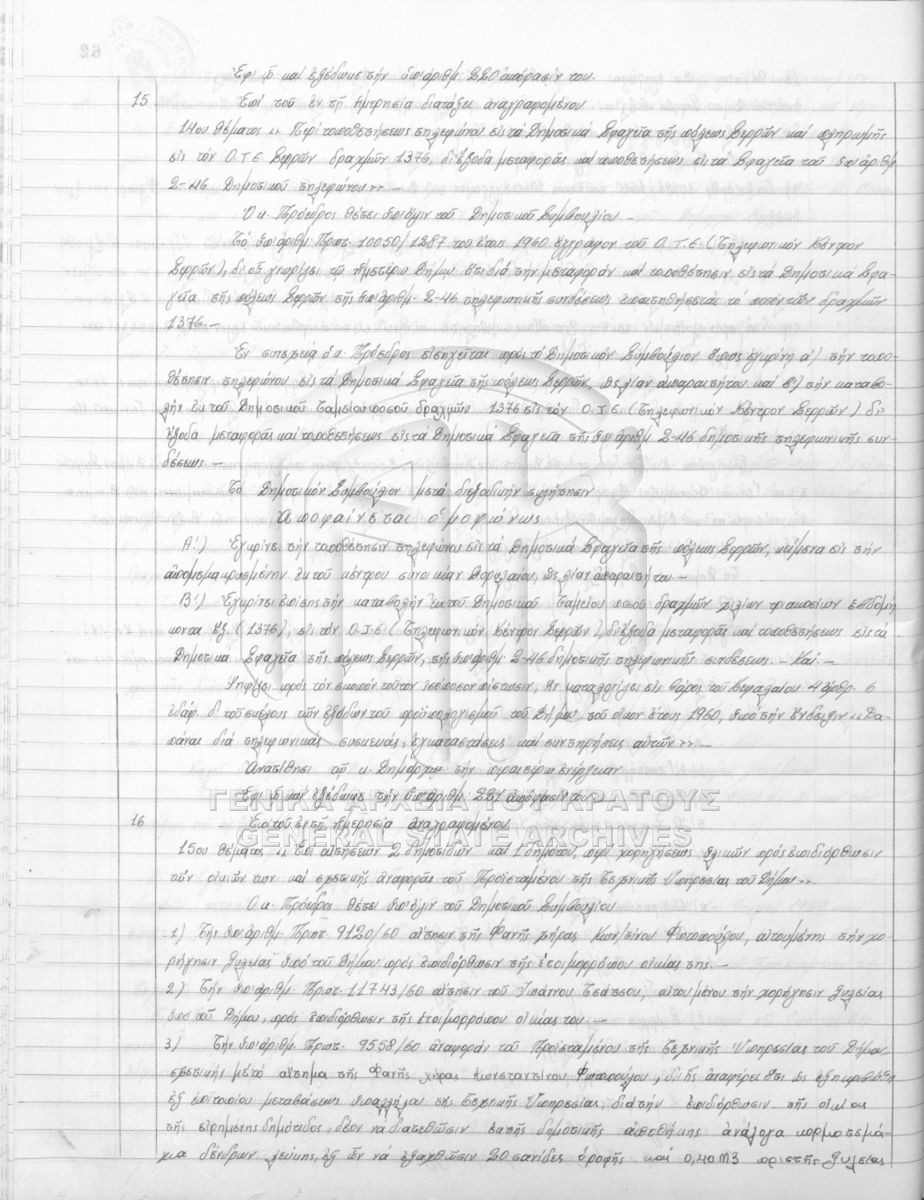 62
Ἐφ' ᾧ καί ἐξεδώκε τήν ὑπ' ἀριθμ. 220 ἀπόφασίν του.
15 Ἐπί τοῦ ἐν τῇ ἡμερησίᾳ διατάξει ἀναγραφομένου
14ου θέματος ,, Περί τοποθετήσεως τηλεφώνου εἰς τά Δημοτικά Σφαγεῖα τῆς πόλεως Σερρῶν καί πληρωμῆς
εἰς τόν Ο.Τ.Ε. Σερρῶν δραχμῶν 1376, δι' ἔξοδα μεταφορᾶς καί τοποθετήσεως εἰς τά Σφαγεῖα τοῦ ὑπ' ἀριθμ.
2-46 Δημοτικοῦ τηλεφώνου ,, . –
Ὁ κ. Πρόεδρος θέτει ὑπ' ὄψιν τοῦ Δημοτικοῦ Συμβουλίου –
Τό ὑπ' ἀριθμ. Πρωτ. 10050/1287 τοῦ ἔτους 1960 ἔγγραφον τοῦ Ο.Τ.Ε. (Τηλεφωνικόν Κέντρον
Σερρῶν), δι' οὗ γνωρίζει τῷ ἡμετέρῳ Δήμῳ ὅτι διά τήν μεταφοράν καί τοποθέτησιν εἰς τά Δημοτικά Σφα-
γεῖα τῆς πόλεως Σερρῶν τῆς ὑπ' ἀριθμ. 2-46 τηλεφωνικῆς συνδέσεως ἀπαιτηθήσεται τό ποσόν τῶν δραχμῶν
1376. –
Ἐν συνεχείᾳ ὁ κ. Πρόεδρος εἰσηγεῖται πρός τό Δημοτικόν Συμβούλιον ὅπως ἐγκρίνῃ α') τήν τοπο-
θέτησιν τηλεφώνου εἰς τά Δημοτικά Σφαγεῖα τῆς πόλεως Σερρῶν, ὡς λίαν ἀπαραιτήτου καί β') τήν καταβο-
λήν ἐκ τοῦ Δημοτικοῦ Ταμείου ποσοῦ δραχμῶν 1376 εἰς τόν Ο.Τ.Ε. (Τηλεφωνικόν Κέντρον Σερρῶν) δι'
ἔξοδα μεταφορᾶς καί τοποθετήσεως εἰς τά Δημοτικά Σφαγεῖα τῆς ὑπ' ἀριθμ 2-46 δημοτικῆς τηλεφωνικῆς συν-
δέσεως. –
Τό Δημοτικόν Συμβούλιον μετά διεξοδικήν συζήτησιν
Ἀποφαίνεται ὁμοφώνως
Α') Ἐγκρίνει τήν τοποθέτησιν τηλεφώνου εἰς τά Δημοτικά Σφαγεῖα τῆς πόλεως Σερρῶν, κείμενα εἰς τήν
ἀπομεμακρυσμένην ἐκ τοῦ κέντρου συνοικίαν Δορυλαίου, ὡς λίαν ἀπαραιτήτου –
Β') Ἐγκρίνει ἐπίσης τήν καταβολήν ἐκ τοῦ Δημοτικοῦ Ταμείου ποσοῦ δραχμῶν χιλίων τριακοσίων ἑβδομή-
κοντα ἕξ (1376), εἰς τόν Ο.Τ.Ε (Τηλεφωνικόν Κέντρον Σερρῶν), δι' ἔξοδα μεταφορᾶς καί τοποθετήσεως εἰς τά
Δημοτικά Σφαγεῖα τῆς πόλεως Σερρῶν, τῆς ὑπ' ἀριθμ. 2-46 δημοτικῆς τηλεφωνικῆς συνδέσεως. – Καί. –
Ψηφίζει πρός τόν σκοπόν τοῦτον ἰσόποσον πίστωσιν, ἥν καταλογίζει εἰς βάρος τοῦ Κεφαλαίου 4 ἄρθρ. 6
ἐδάφ. δ τοῦ σκέλους τῶν ἐξόδων τοῦ προϋπολογισμοῦ τοῦ Δήμου τοῦ οἰκον. ἔτους 1960, ὑπό τήν ἔνδειξιν ,, Δα-
πάναι διά τηλεφωνικάς συσκευάς, ἐγκαταστάσεις καί συντηρήσεις αὐτῶν ,, . –
Ἀνατίθησι τῷ κ. Δημάρχῳ τήν περαιτέρω ἐνέργειαν
Ἐφ' ᾧ καί ἐξεδώκε τήν ὑπ' ἀριθμ. 221 ἀπόφασίν του
ΓΕΝΙΚΑ ΑΡΧΕΙΑ ΤΟΥ ΚΡΑΤΟΥΣ
GENERAL STATE ARCHIVES
16 Ἐπί τοῦ ἐν τῇ ἡμερησίᾳ ἀναγραφομένου
15ου θέματος ,, Ἐπί αἰτήσεων 2 δημοτίδων καί 1 δημότου, περί χορηγήσεως ὑλικῶν πρός ἐπιδιόρθωσιν
τῶν οἰκιῶν των καί σχετικῆς ἀναφορᾶς τοῦ Προϊσταμένου τῆς Τεχνικῆς Ὑπηρεσίας τοῦ Δήμου ,, .
Ὁ κ. Πρόεδρος θέτει ὑπ' ὄψιν τοῦ Δημοτικοῦ Συμβουλίου
1) Τήν ὑπ' ἀριθμ. Πρωτ. 9120/60 αἴτησιν τῆς Φανῆς χήρας Κων/τίνου Φωτοπούλου, αἰτουμένης τήν χο-
ρήγησιν ξυλείας ὑπό τοῦ Δήμου πρός ἐπιδιόρθωσιν τῆς ἑτοιμορρόπου οἰκίας της –
2) Τήν ὑπ' ἀριθμ. Πρωτ. 11743/60 αἴτησιν τοῦ Ἰωάννου Τσάτσου, αἰτουμένου τήν χορήγησιν ξυλείας
ὑπό τοῦ Δήμου, πρός ἐπιδιόρθωσιν τῆς ἑτοιμορρόπου οἰκίας του –
3) Τήν ὑπ' ἀριθμ. Πρωτ. 9558/60 ἀναφοράν τοῦ Προϊσταμένου τῆς Τεχνικῆς Ὑπηρεσίας τοῦ Δήμου
σχετικήν μέ τό αἴτημα τῆς Φανῆς χήρας Κωνσταντίνου Φωτοπούλου, δι' ἧς ἀναφέρει ὅτι ὡς ἐξηκριβώθη
ἐξ ἐπιτοπίου μεταβάσεως ὑπαλλήλου τῆς Τεχνικῆς Ὑπηρεσίας, διά τήν ἐπιδιόρθωσιν τῆς οἰκίας
τῆς εἰρημένης δημότιδος, δέον νά διατεθῶσιν ἐκ τῆς δημοτικῆς ἀποθήκης ἀνάλογα κορμοτεμά-
χια δένδρων λεύκης, ἐξ ὧν νά ἐξαχθῶσιν 20 σανίδες ὀροφῆς καί 0,40 m3 πριστῆς ξυλείας